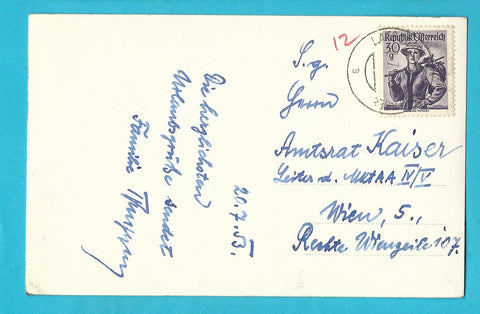 12
LA
a
Republik Österreich
30
g
S. g.
Herrn
Amtsrat Kaiser
Leiter d. MBA IV/V
Wien, 5.,
Rechte Wienzeile 107.
20.7.53.
Die herzlichsten
Urlaubsgrüße sendet
Familie